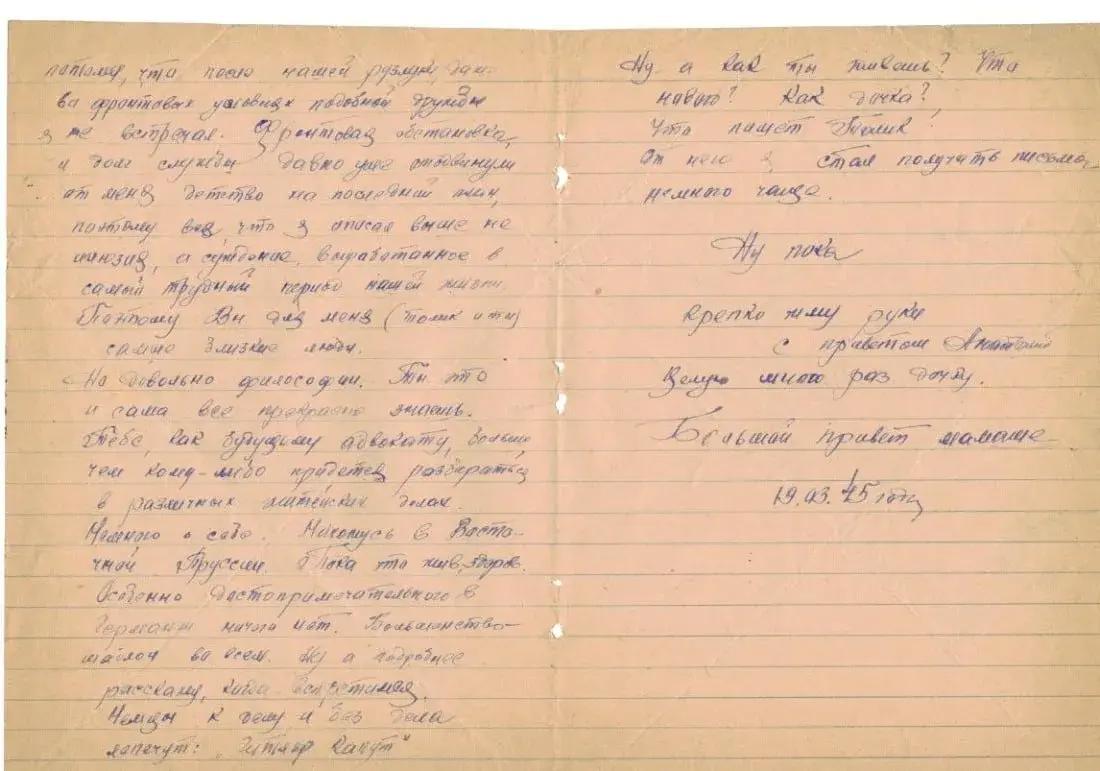 потому, что после нашей разлуки даж-
ва фронтовых условиях подобной дружбы
я не встречал. Фронтовая обстановка,
и долг службы давно уже отодвинули
от меня детство на последний план,
поэтому всё, что я описал выше не
иллюзия, а суждение, выработанное в
самый трудный период нашей жизни.
Поэтому Вы для меня (Толик и ты)
самые близкие люди.
Но довольно философии. Ты это
и сама все прекрасно знаешь.
Тебе, как будущему адвокату, больше
чем кому-либо придется разбираться
в различных житейских делах.
Немного о себе. Нахожусь в Восто-
чной Пруссии. Пока что жив, здоров.
Особенно достопримечательного в
Германии ничего нет. Большинство-
шаблон во всем. Ну а подробнее
расскажу, когда встретимся.
Немцы к делу и без дела
лопочут: "Гитлер капут"
Ну а как ты живешь? Что
нового? Как дочка?,
Что пишет Толик?
От него я стал получать письма,
немного чаще.
Ну пока
Крепко жму руки
с приветом Анатолий
Целую много раз дочку.
Большой привет мамаше
19.03.45 года